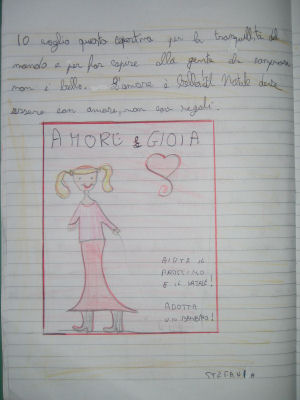 IO voglio questa copertina per la tranquillità del
mondo e per far capire alla gente di
non è bello. L'amore è bello il Natale deve
essere con amore, non con regali.
AMORE & GIOIA
AIUTA IL
PROSSIMO
E IL NATALE!
ADOTTA
UN BAMBINO!
STEFANIA